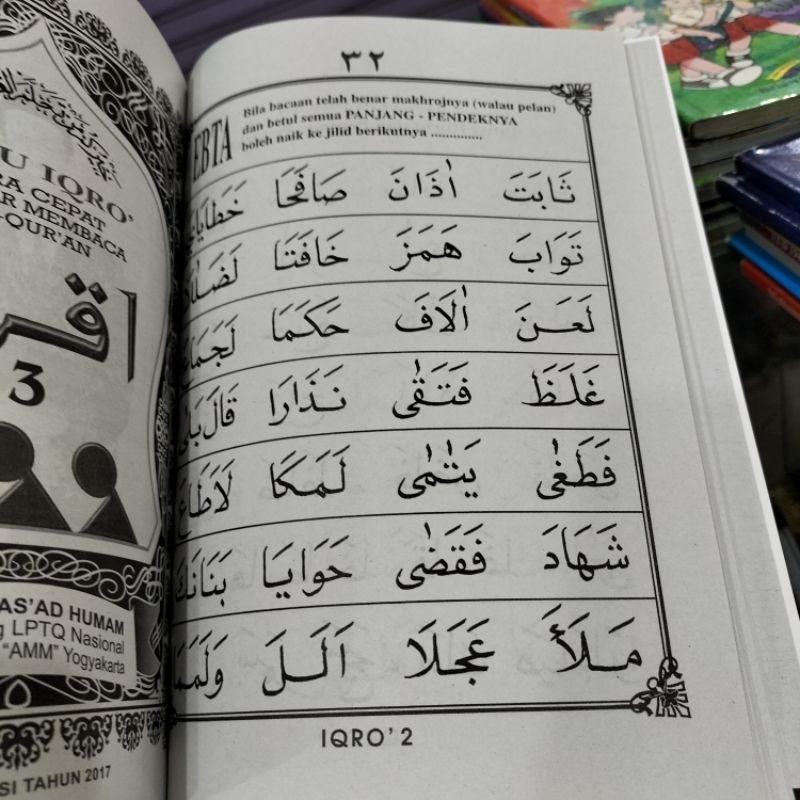 IQRO'
CEPAT
MEMBACA
QUR'AN
3
AS'AD HUMAM
LPTQ Nasional
"AMM" Yogyakarta
TAHUN 2017
٣٢
EBTA
Bila bacaan telah benar makhrojnya (walau pelan)
dan betul semua PANJANG - PENDEKNYA
boleh naik ke jilid berikutnya ..............
ثَابَتَ اٰذَانَ صَافَحَا
تَوَابَ هَمَزَ خَافَتَا
لَعَنَ اٰلَافَ حَكَمَا
غَلَظَ فَتَقٰى نَذَارَا قَالَ بَلٰى
فَطَغٰى يَتٰمٰى لَمَكَا لَاطَاعَ
شَهَادَ فَقَضٰى حَوَايَا بَنَانَكَ
مَلَأَ عَجَلَا اَلَلَ
IQRO' 2